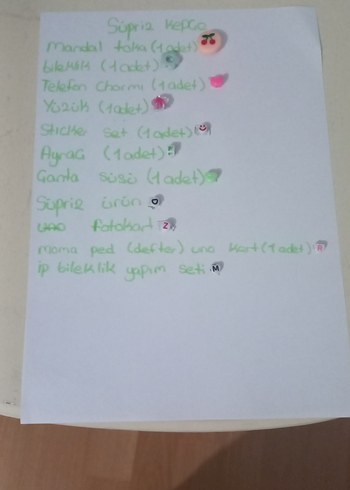 Süpriz Kepço
mandal toka (1 adet)
bileklik (1 adet)
Telefon charmi (1 adet)
Yüzük (1 adet)
Sticke set (1 adet)
Ayraç (1 adet)
Çanta süsü (1 adet)
Süpriz ürün O
fotokart Z
moma ped (defter) uno kart (1 adet) R
ip bileklik yapım seti M